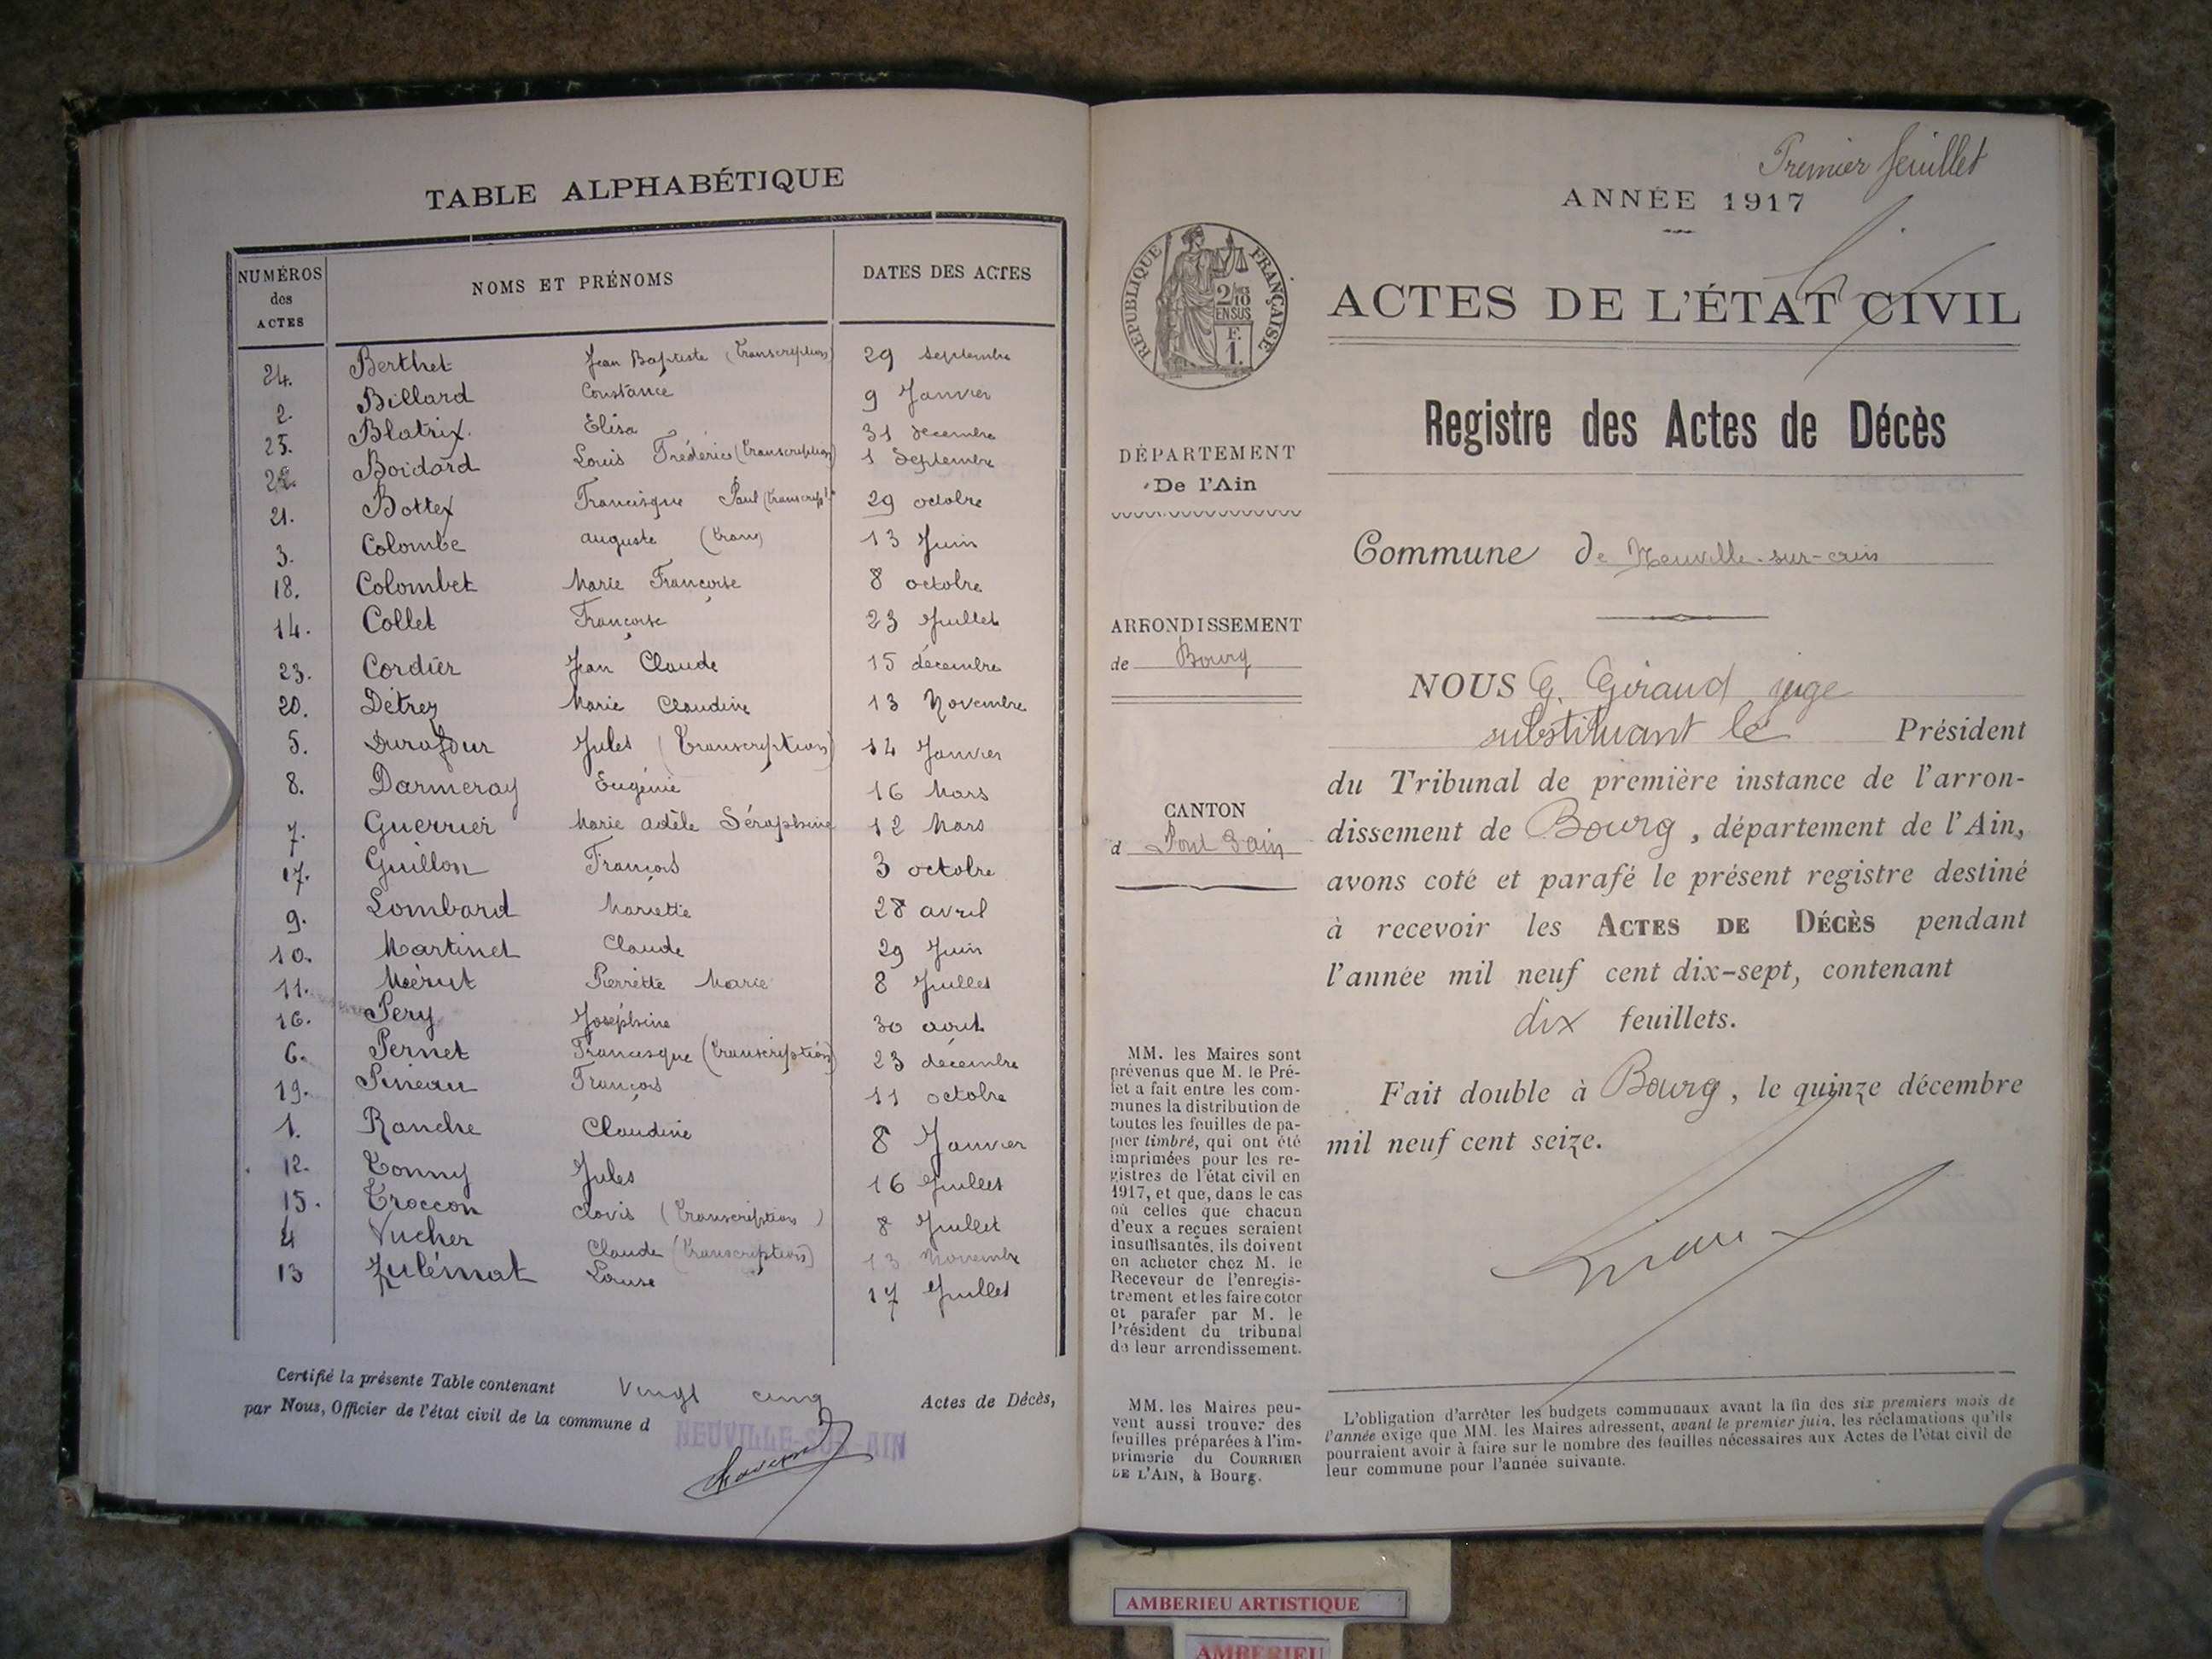 TABLE ALPHABÉTIQUE
NUMÉROS des ACTES NOMS ET PRÉNOMS DATES DES ACTES
24. Berthet Jean Baptiste (Transcription) 29 septembre
2. Billard Constance 9 Janvier
25. Blatrix. Elisa 31 décembre
22. Boidard Louis Frédéric (transcription) 1 Septembre
21. Bottex Francisque Paul (transcript 29 octobre
3. Colombe auguste (tran) 13 Juin
18. Colombet Marie Françoise 8 octobre
14. Collet Françoise 23 Juillet
23. Cordier Jean Claude 15 décembre
20. Détrez Marie Claudine 13 Novembre
5. Durafour Jules (Transcription) 14 Janvier
8. Darmeray Eugénie 16 Mars
7. Guerrier Marie adèle Séraphine 12 Mars
17. Guillon François 3 octobre
9. Lombard Mariette 28 avril
10. Martinet Claude 29 Juin
11. Pierrette Marie 8 Juillet
16. Pery Joséphine 30 aout
6. Pernet Francisque (transcription) 23 décembre
19. Pineau François 11 octobre
1. Ranche Claudine 8 Janvier
12. Tonny Jules 16 Juillet
15. Troccon Clovis (Transcription) 8 Juillet
4 Vucher Claude (Transcription) 13 Novembre
13 Zulémat Louise 17 Juillet
Certifié la présente Table contenant Vingt cinq Actes de Décès,
par Nous, Officier de l'état civil de la commune d NEUVILLE-SUR-AIN
Premier feuillet
ANNÉE 1917
RÉPUBLIQUE FRANÇAISE
2/10 EN SUS
F. 1.
ACTES DE L'ÉTAT CIVIL
Registre des Actes de Décès
DÉPARTEMENT
De l'Ain
Commune de Neuville-sur-ain
ARRONDISSEMENT
de Bourg
NOUS G. Giraud juge
substituant le Président
du Tribunal de première instance de l'arron-
CANTON
dissement de Bourg, département de l'Ain,
d Pont d'ain
avons coté et parafé le présent registre destiné
à recevoir les ACTES DE DÉCÈS pendant
l'année mil neuf cent dix-sept, contenant
dix feuillets.
Fait double à Bourg, le quinze décembre
mil neuf cent seize.
MM. les Maires sont
prévenus que M. le Pré-
fet a fait entre les com-
munes la distribution de
toutes les feuilles de pa-
pier timbré, qui ont été
imprimées pour les re-
gistres de l'état civil en
1917, et que, dans le cas
où celles que chacun
d'eux a reçues seraient
insuffisantes, ils doivent
en acheter chez M. le
Receveur de l'enregis-
trement et les faire coter
et parafer par M. le
Président du tribunal
de leur arrondissement.
MM. les Maires peu-
vent aussi trouver des
feuilles préparées à l'im-
primerie du COURRIER
DE L'AIN, à Bourg.
L'obligation d'arrêter les budgets communaux avant la fin des six premiers mois de
l'année exige que MM. les Maires adressent, avant le premier juin, les réclamations qu'ils
pourraient avoir à faire sur le nombre des feuilles nécessaires aux Actes de l'état civil de
leur commune pour l'année suivante.
AMBERIEU ARTISTIQUE
AMBERIEU